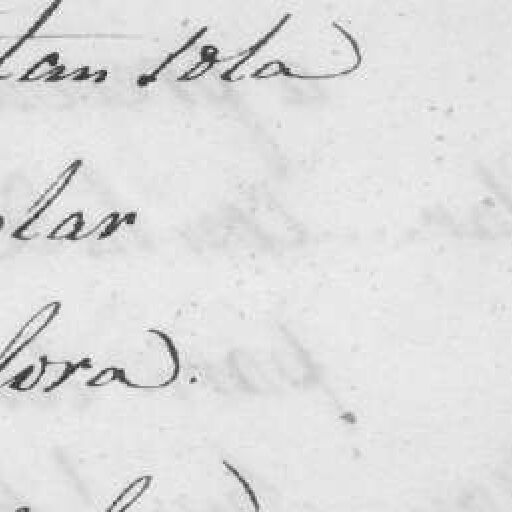 tan sola
lar
lora.